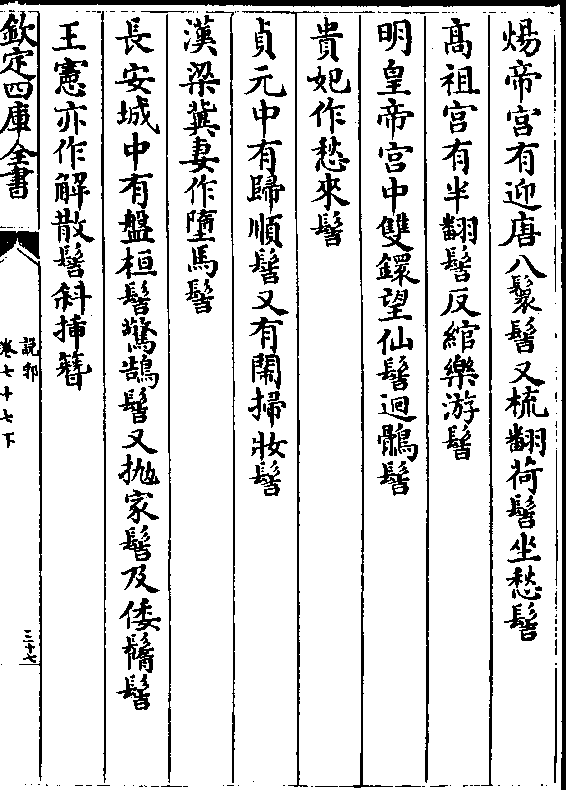 煬帝宫有迎唐八鬟髻又梳翻荷髻坐愁髻
髙祖宫有半翻髻反綰樂游髻
明皇帝宫中雙鐶望仙髻迴鶻髻
貴妃作愁來髻
貞元中有歸順髻又有閙掃妝髻
漢梁冀妻作墮馬髻
長安城中有盤桓髻驚鵠髻又抛家髻及倭鬌髻
王憲亦作解散髻斜揷簪
欽定四庫全書
説郛
卷七十七下
三十七